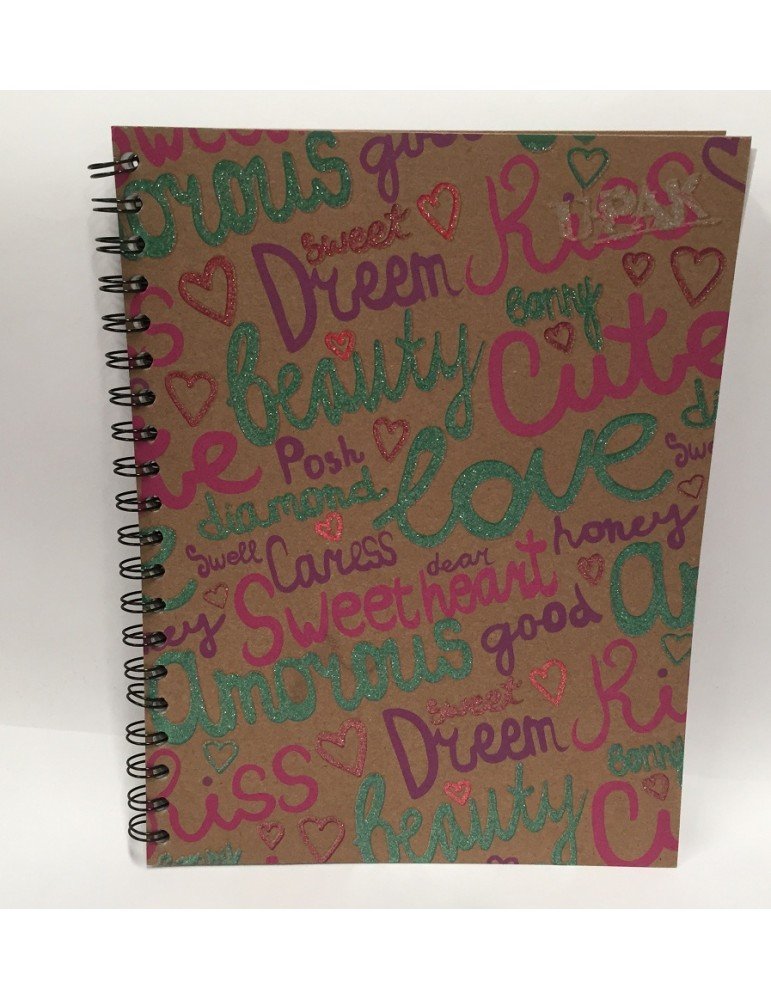 Sweet
orous good
Kiss
UPAK
Sweet
Dreem
Bonny
beauty Cute
Posh love
diamond
Swell Caress dear honey
Sweetheart
amorous good
Sweet
Dreem Ki
Kiss Bonny
beauty Cu
Bonny